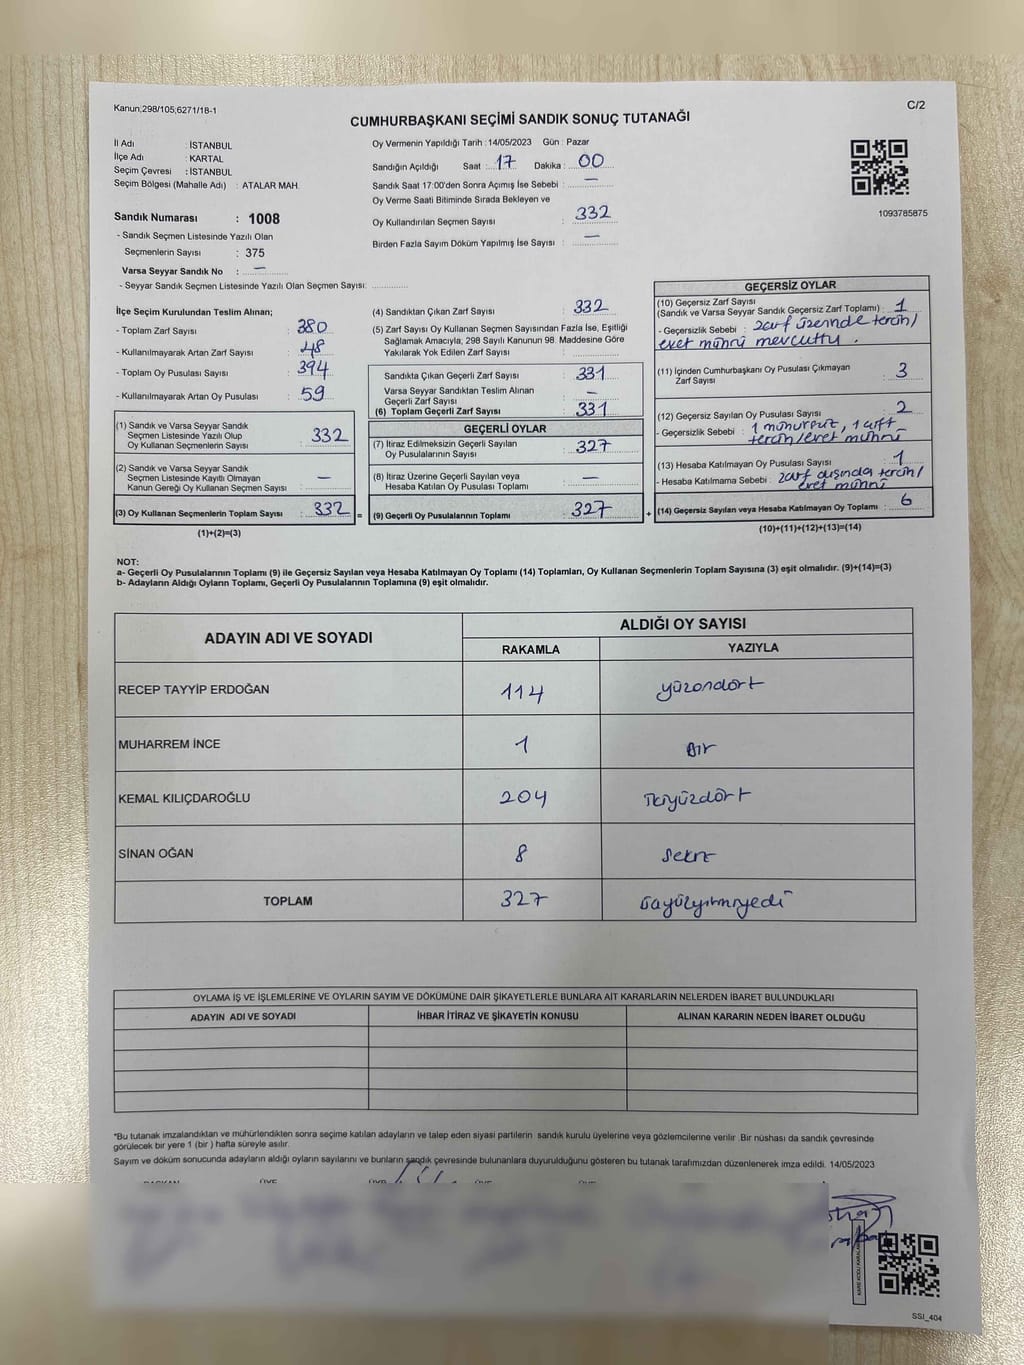 Kanun;298/105;6271/18-1
C/2
CUMHURBAŞKANI SEÇİMİ SANDIK SONUÇ TUTANAĞI
İl Adı : İSTANBUL
İlçe Adı : KARTAL
Seçim Çevresi : İSTANBUL
Seçim Bölgesi (Mahalle Adı) : ATALAR MAH.
Sandık Numarası : 1008
- Sandık Seçmen Listesinde Yazılı Olan
Seçmenlerin Sayısı : 375
Varsa Seyyar Sandık No : —
- Seyyar Sandık Seçmen Listesinde Yazılı Olan Seçmen Sayısı:
Oy Vermenin Yapıldığı Tarih : 14/05/2023 Gün : Pazar
Sandığın Açıldığı Saat : 17 Dakika : 00
Sandık Saat 17:00'den Sonra Açımış İse Sebebi : —
Oy Verme Saati Bitiminde Sırada Bekleyen ve
Oy Kullandırılan Seçmen Sayısı : 332
Birden Fazla Sayım Döküm Yapılmış İse Sayısı : —
1093785875
İlçe Seçim Kurulundan Teslim Alınan;
- Toplam Zarf Sayısı : 380
- Kullanılmayarak Artan Zarf Sayısı : 48
- Toplam Oy Pusulası Sayısı : 394
- Kullanılmayarak Artan Oy Pusulası : 59
(1) Sandık ve Varsa Seyyar Sandık
Seçmen Listesinde Yazılı Olup
Oy Kullanan Seçmenlerin Sayısı : 332
(2) Sandık ve Varsa Seyyar Sandık
Seçmen Listesinde Kayıtlı Olmayan
Kanun Gereği Oy Kullanan Seçmen Sayısı : —
(3) Oy Kullanan Seçmenlerin Toplam Sayısı : 332 =
(1)+(2)=(3)
(4) Sandıktan Çıkan Zarf Sayısı : 332
(5) Zarf Sayısı Oy Kullanan Seçmen Sayısından Fazla İse, Eşitliği
Sağlamak Amacıyla, 298 Sayılı Kanunun 98. Maddesine Göre
Yakılarak Yok Edilen Zarf Sayısı :
Sandıkta Çıkan Geçerli Zarf Sayısı : 331
Varsa Seyyar Sandıktan Teslim Alınan
Geçerli Zarf Sayısı : —
(6) Toplam Geçerli Zarf Sayısı : 331
GEÇERLİ OYLAR
(7) İtiraz Edilmeksizin Geçerli Sayılan
Oy Pusulalarının Sayısı : 327
(8) İtiraz Üzerine Geçerli Sayılan veya
Hesaba Katılan Oy Pusulası Toplamı : —
(9) Geçerli Oy Pusulalarının Toplamı : 327 +
GEÇERSİZ OYLAR
(10) Geçersiz Zarf Sayısı
(Sandık ve Varsa Seyyar Sandık Geçersiz Zarf Toplamı) : 1
- Geçersizlik Sebebi : zarf üzerinde tercih/
evet mührü mevcuttu .
(11) İçinden Cumhurbaşkanı Oy Pusulası Çıkmayan
Zarf Sayısı : 3
(12) Geçersiz Sayılan Oy Pusulası Sayısı : 2
- Geçersizlik Sebebi : 1 mühürsüz, 1 çift
tercih/evet mührü
(13) Hesaba Katılmayan Oy Pusulası Sayısı : 1
- Hesaba Katılmama Sebebi : zarf dışında tercih/
evet mührü
(14) Geçersiz Sayılan veya Hesaba Katılmayan Oy Toplamı : 6
(10)+(11)+(12)+(13)=(14)
NOT:
a- Geçerli Oy Pusulalarının Toplamı (9) ile Geçersiz Sayılan veya Hesaba Katılmayan Oy Toplamı (14) Toplamları, Oy Kullanan Seçmenlerin Toplam Sayısına (3) eşit olmalıdır. (9)+(14)=(3)
b- Adayların Aldığı Oyların Toplamı, Geçerli Oy Pusulalarının Toplamına (9) eşit olmalıdır.
ADAYIN ADI VE SOYADI
ALDIĞI OY SAYISI
RAKAMLA YAZIYLA
RECEP TAYYİP ERDOĞAN 114 yüzondört
MUHARREM İNCE 1 Bir
KEMAL KILIÇDAROĞLU 204 İkiyüzdört
SİNAN OĞAN 8 Sekiz
TOPLAM 327 üçyüzyirmiyedi
OYLAMA İŞ VE İŞLEMLERİNE VE OYLARIN SAYIM VE DÖKÜMÜNE DAİR ŞİKAYETLERLE BUNLARA AİT KARARLARIN NELERDEN İBARET BULUNDUKLARI
ADAYIN ADI VE SOYADI İHBAR İTİRAZ VE ŞİKAYETİN KONUSU ALINAN KARARIN NEDEN İBARET OLDUĞU
*Bu tutanak imzalandıktan ve mühürlendikten sonra seçime katılan adayların ve talep eden siyasi partilerin sandık kurulu üyelerine veya gözlemcilerine verilir. Bir nüshası da sandık çevresinde
görülecek bir yere 1 (bir) hafta süreyle asılır.
Sayım ve döküm sonucunda adayların aldığı oyların sayılarını ve bunların sandık çevresinde bulunanlara duyurulduğunu gösteren bu tutanak tarafımızdan düzenlenerek imza edildi. 14/05/2023
BAŞKAN ÜYE ÜYE ÜYE ÜYE
SSI_404